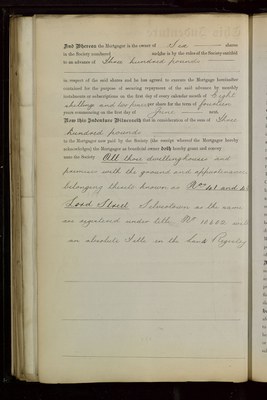 And Whereas the Mortgagor is the owner of Six shares
in the Society numbered and is by the rules of the Society entitled
to an advance of Three hundred pounds
in respect of the said shares and he has agreed to execute the Mortgage hereinafter
contained for the purpose of securing repayment of the said advance by monthly
instalments or subscriptions on the first day of every calendar month of Eight
shillings and per share for the term of fourteen
years commencing on the first day of June next
Now this Indenture Witnesseth that in consideration of the sum of Three
hundred pounds
to the Mortgagor now paid by the Society (the receipt whereof the Mortgagor hereby
acknowledges) the Mortgagor as beneficial owner doth hereby grant and convey
unto the Society All those dwellinghouses and
premises with the ground and appurtenances
belonging thereto known as Nos 61 and
Street Silvertown as the same
are registered under title No 10602 with
an absolute title in the Land Registry